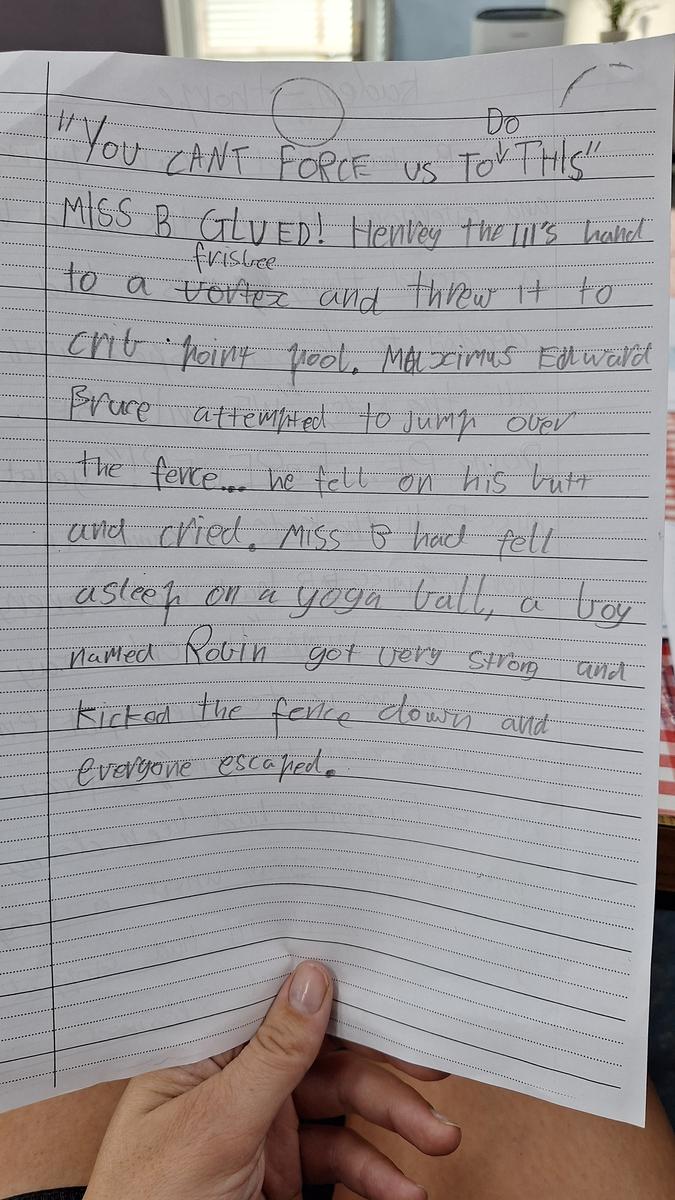 Do
"YOU CANT FORCE US TO THIS"
MISS B GLUED! Henvey the III's hand
frisbee
to a vortex and threw it to
crib point pool. MAxcimus Edward
Bruce attempted to jump over
the fence... he fell on his butt
and cried. Miss B had fell
asleep on a yoga ball, a boy
named Robin got very strong and
kicked the fence down and
everyone escaped.